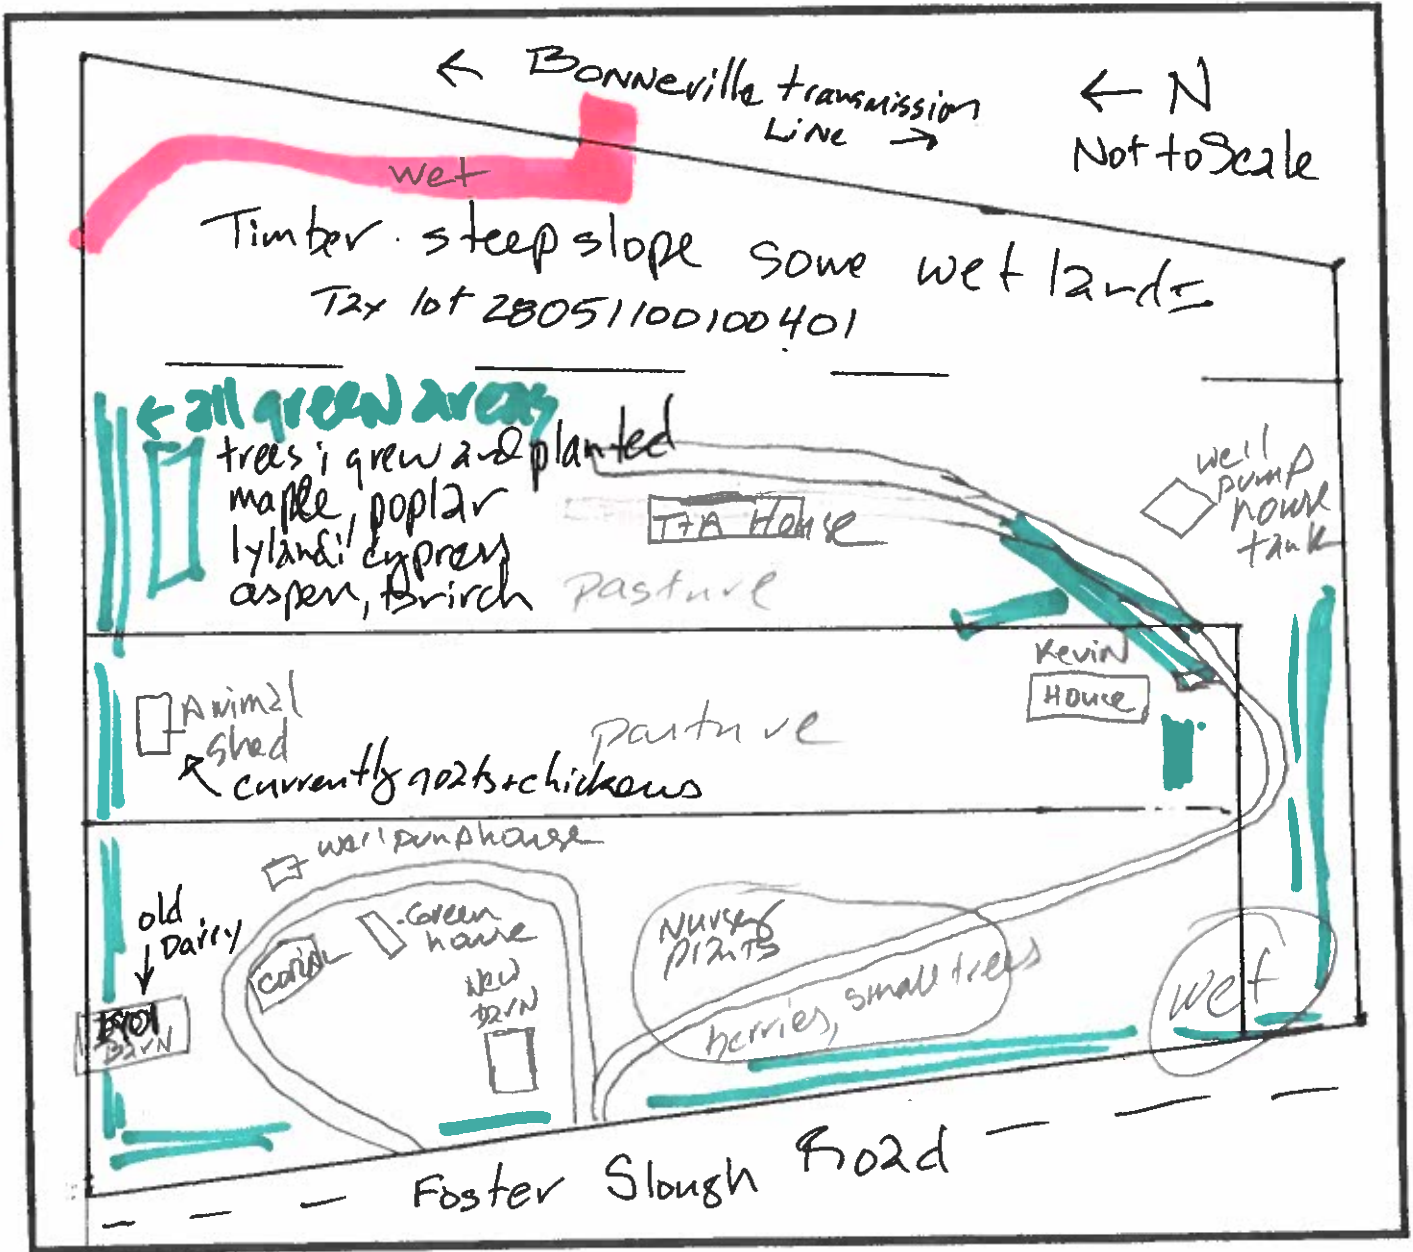 ← Bonneville transmission
Line →
← N
Not to Scale
wet
Timber. steep slope some wet lands
Tax lot 28051100100401
← all green areas
trees i grew and planted
maple, poplar
lylandi cypress
aspen, Brirch
T+A House
pasture
well
pump
house
tank
Kevin
House
Animal
shed
pasture
currently goats + chickens
well pumphouse
old
Dairy
Green
house
corral
New
barn
Barn
Nursey
plants
berries, small trees
wet
Foster Slough Road